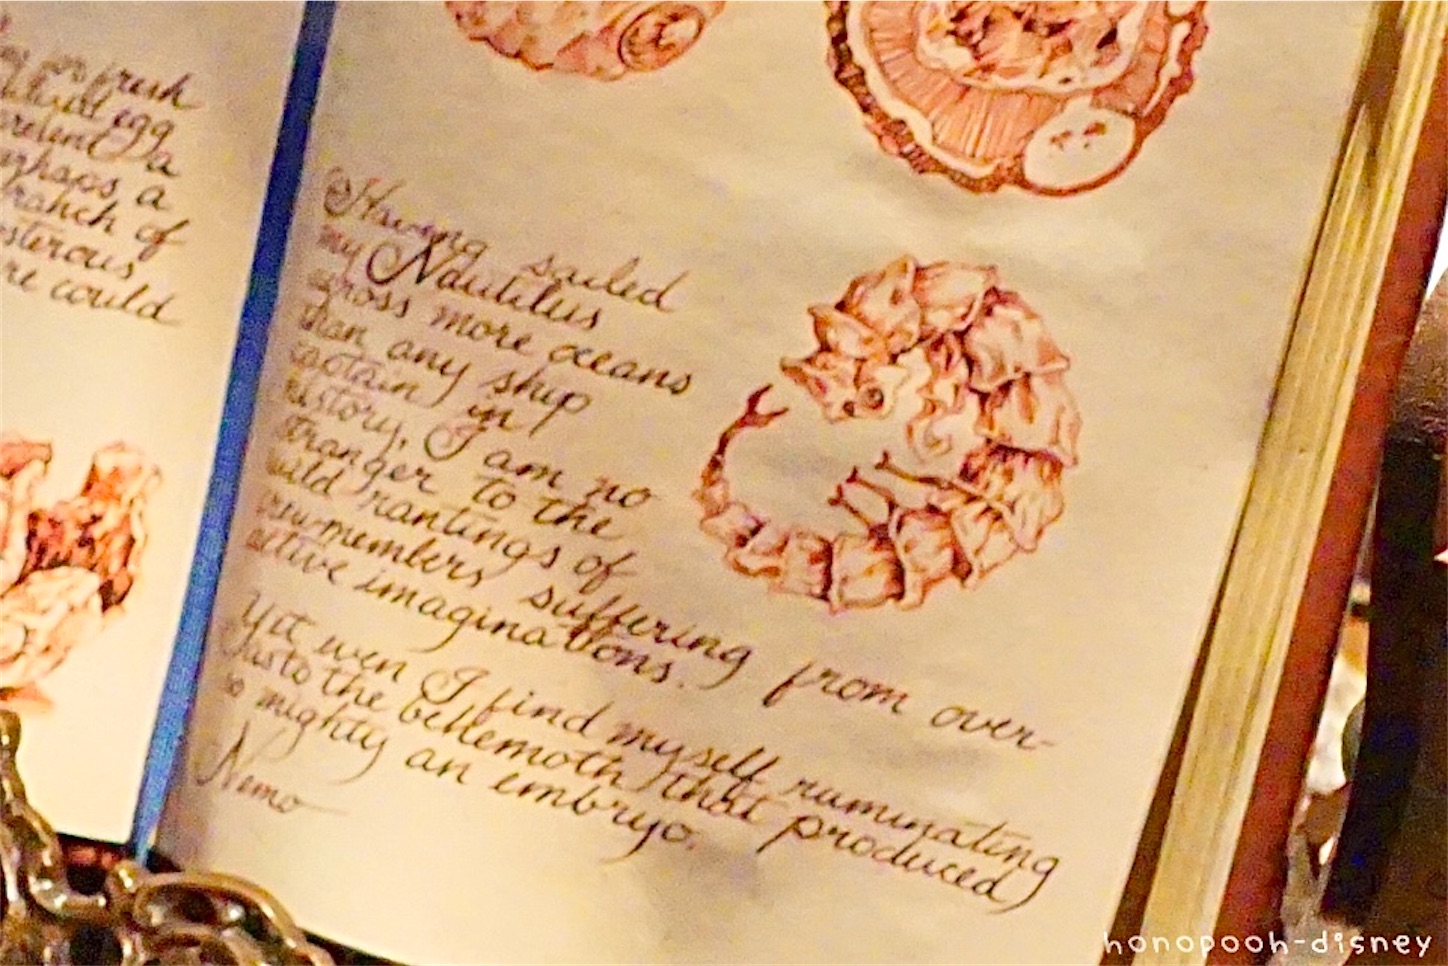 or fresh
egg
a
perhaps a
branch of
sterous
re could
Having sailed
my Nautilus
across more oceans
than any ship
captain in
history, I am no
stranger to the
wild rantings of
crewmembers suffering from over-
active imaginations.
Yet even I find myself ruminating
as to the behemoth that produced
so mighty an embryo.
Nemo
honopooh-disney